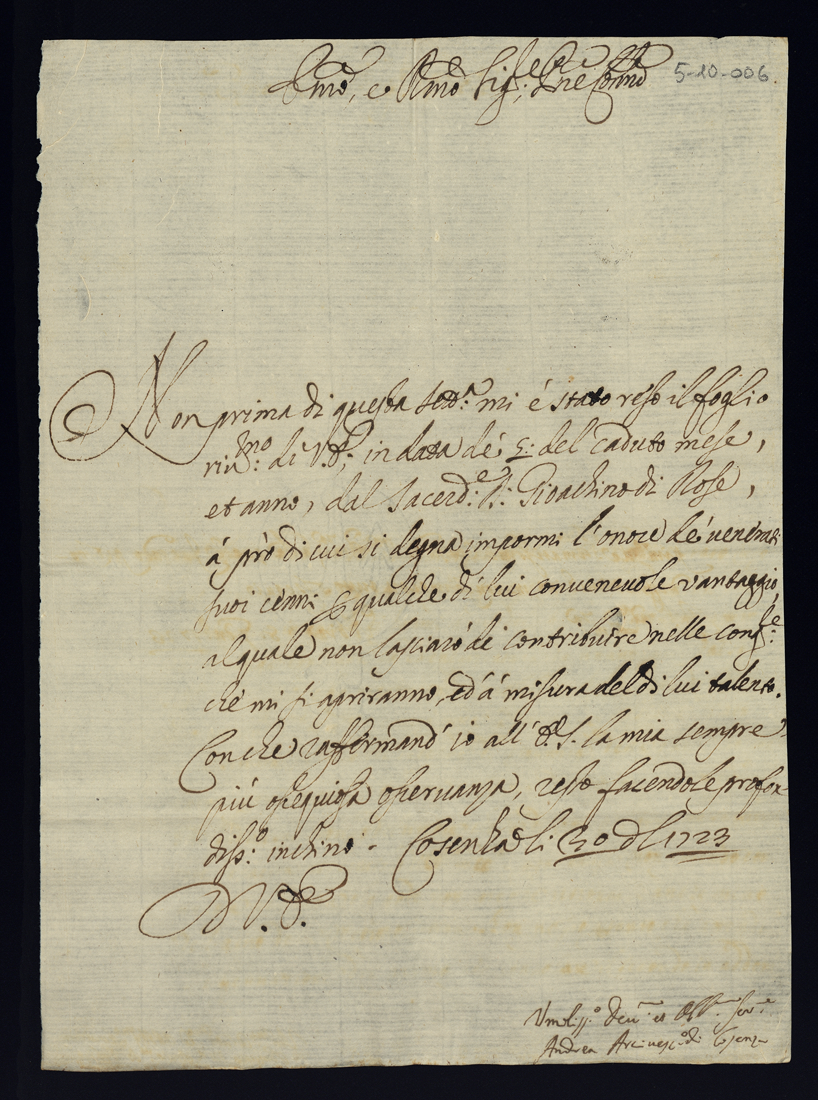 Emo, e Rmo Sig.re Pne Collmo
5-10-006
Non prima di questa sett.a mi é stato reso il foglio
riv.mo: di V.E, in data de' 5: del caduto mese,
et anno, dal Sacerd.e D: Gioachino di Rose,
á prò di cui si degna impormi l'onore de' venerati
suoi cenni qualche di lui convenevole vantaggio,
al quale non lasciaró di contribuire nelle cong.re:
che mi si apriranno, ed á misura del di lui talento.
Con che raffermand' io all' E.S. la mia sempre
piú ossequiosa osservanza, resto facendole profon
diss.o: inchino. Cosenza li: 1723
D V.E.
Vmiliss.o Dev. et Obb. ser.
Andrea Arcivesc.o di Cosenza